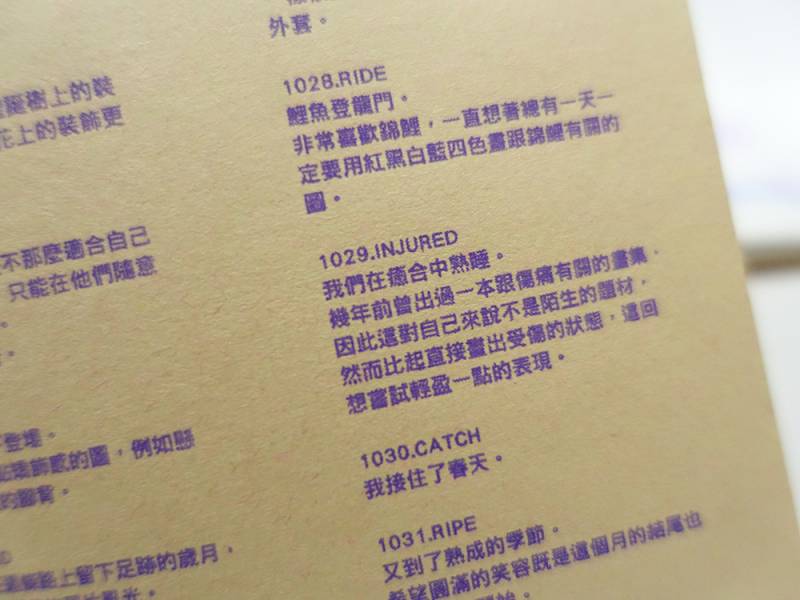 樹上的裝
花上的裝飾更
不那麼適合自己
只能在他們隨意
。
。
登場。
飾感的圖，例如懸
的圖賞。
上留下足跡的歲月，
光。
外套。
1028.RIDE
鯉魚登龍門。
非常喜歡錦鯉，一直想著總有一天一
定要用紅黑白藍四色畫跟錦鯉有關的
圖。
1029.INJURED
我們在癒合中熟睡。
幾年前曾出過一本跟傷痛有關的畫集，
因此這對自己來說不是陌生的題材，
然而比起直接畫出受傷的狀態，這回
想嘗試輕盈一點的表現。
1030.CATCH
我接住了春天。
1031.RIPE
又到了熟成的季節。
希望圓滿的笑容既是這個月的結尾也
開始。